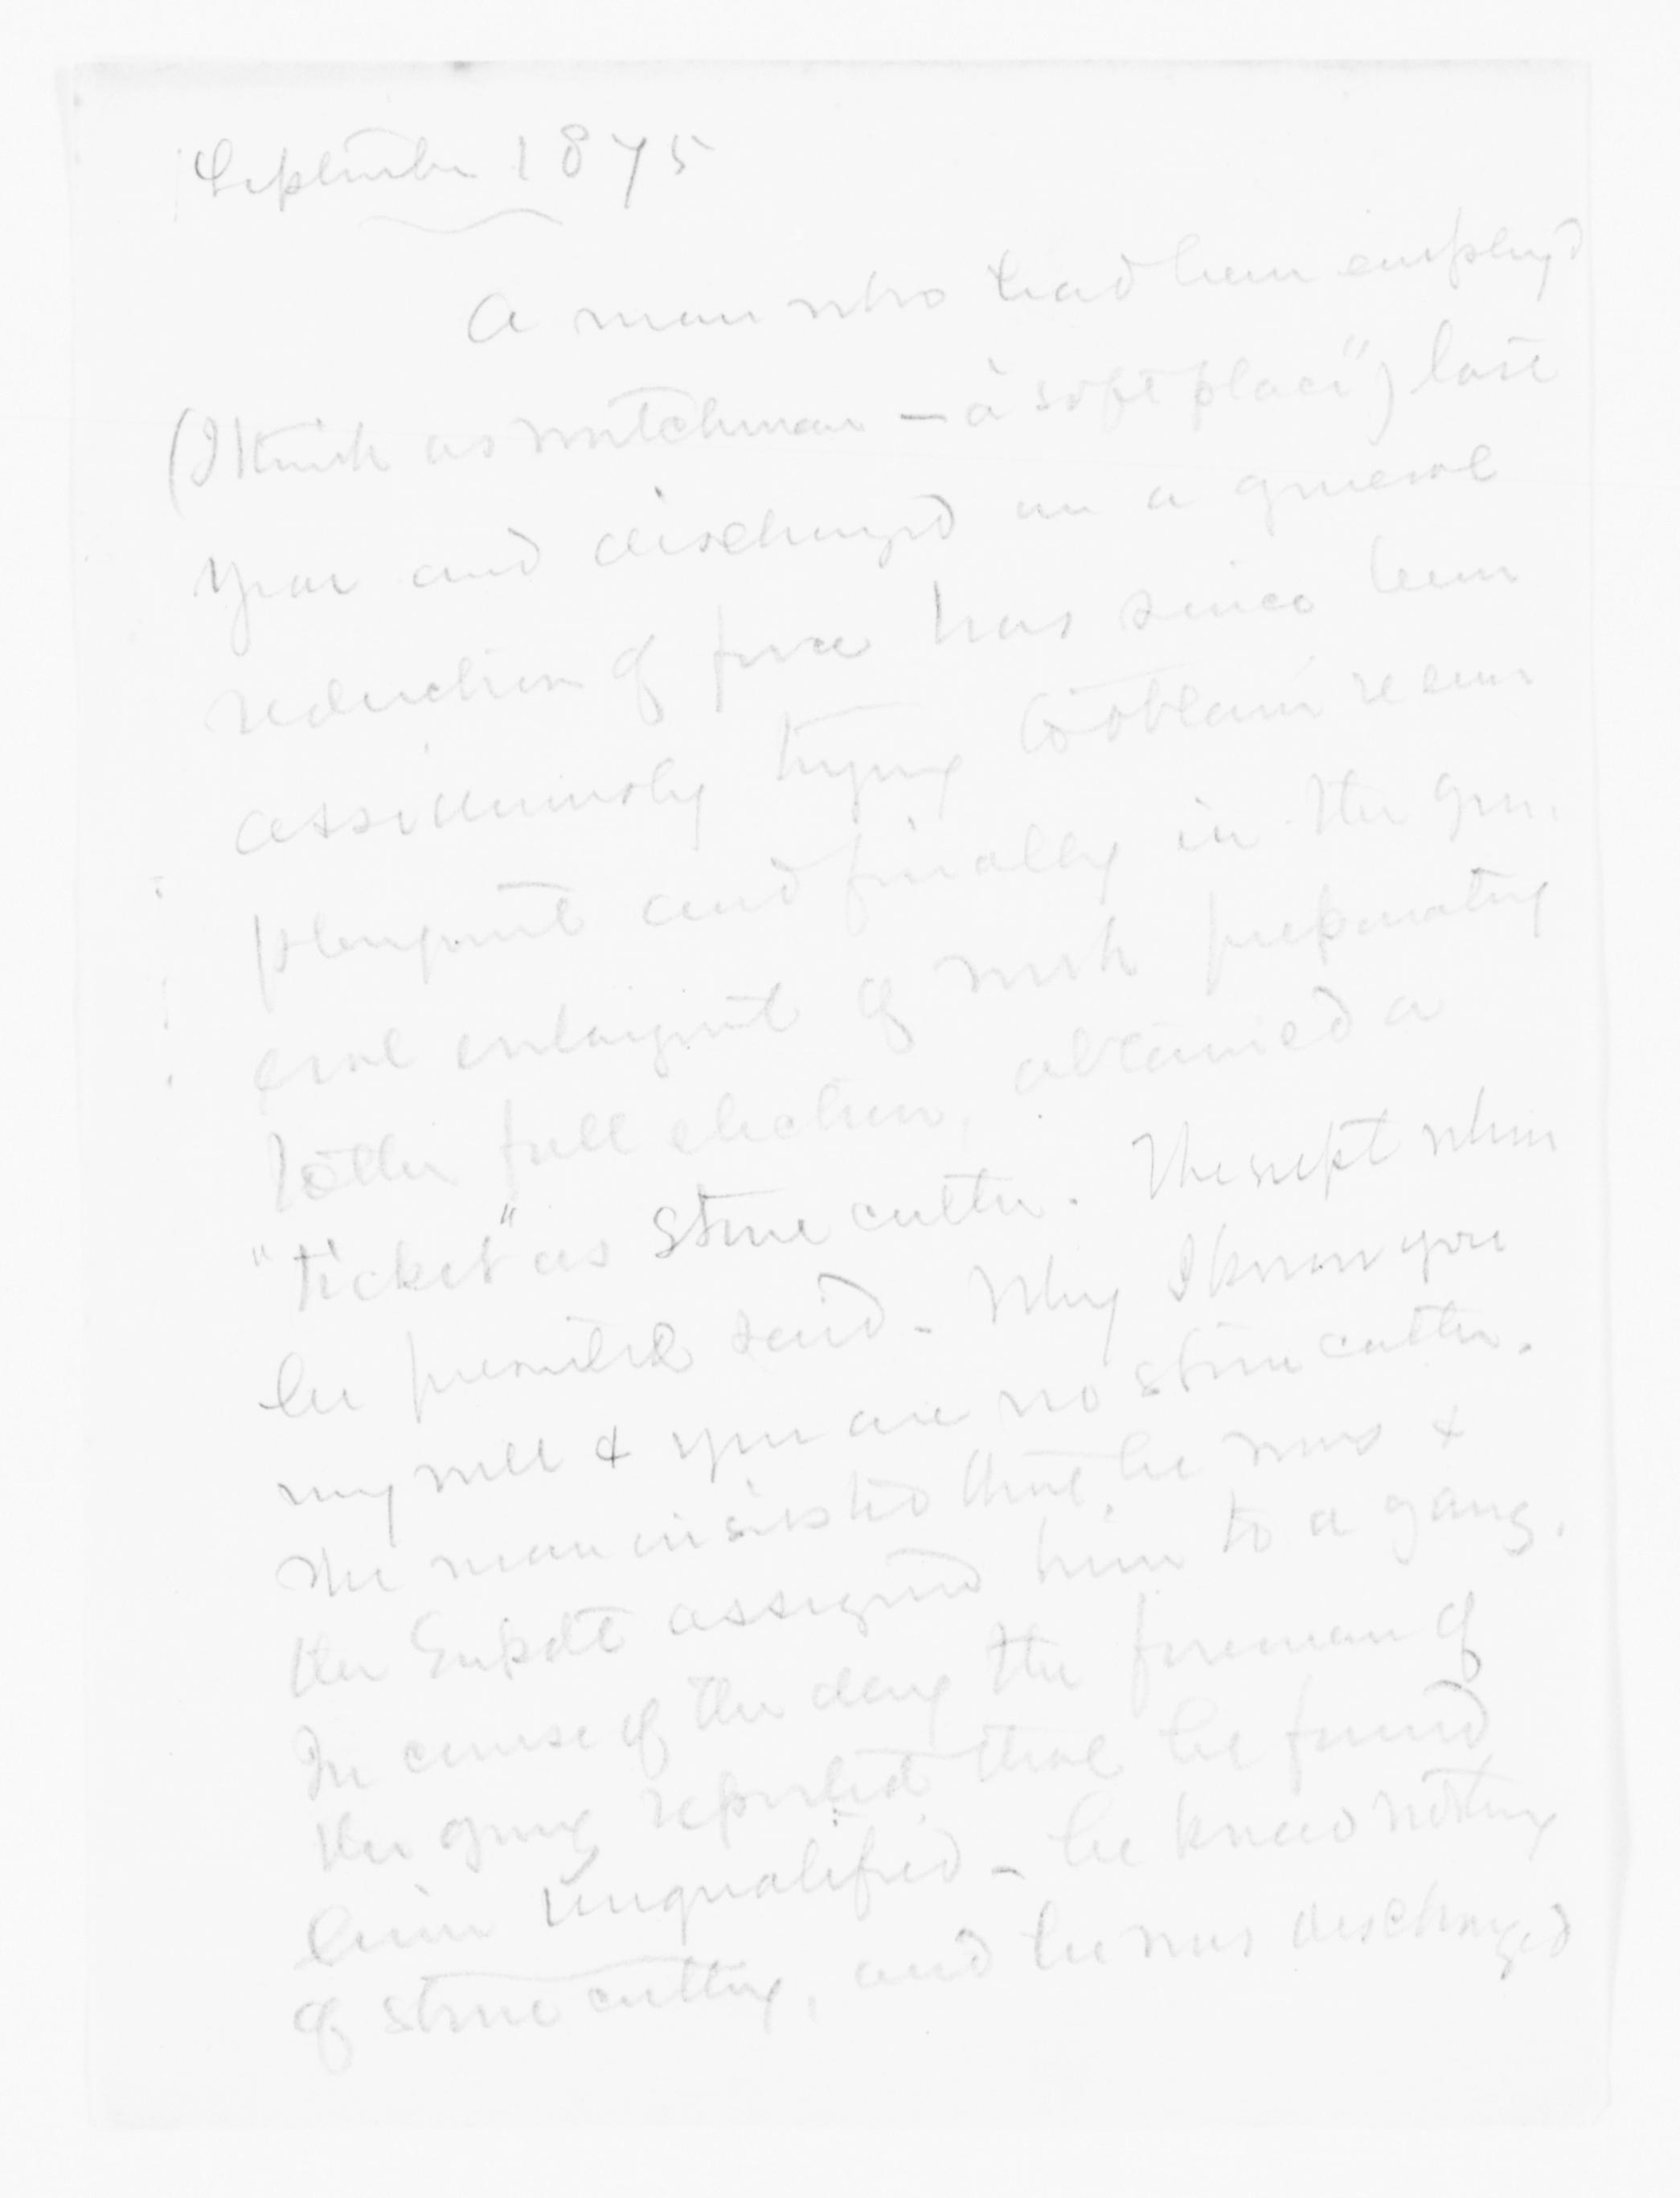 September 1875
A man who had been employd
(I think as watchman — a "soft place") last
year and dischargd on a general
reduction of force has since been
assiduously trying to obtain reem
ployment and finally in the gen.
eral enlargmt of work preparatory
to the fall election, obtained a
"ticket" as stone cutter. The supt when
he presented said – Why I know you
very well & you are no stone cutter.
The man insisted that he was &
the Supdt assigned him to a gang.
In course of the day the foreman of
the gang reported that he found
him unqualified – he knew nothing
of stone cutting, and he was discharged